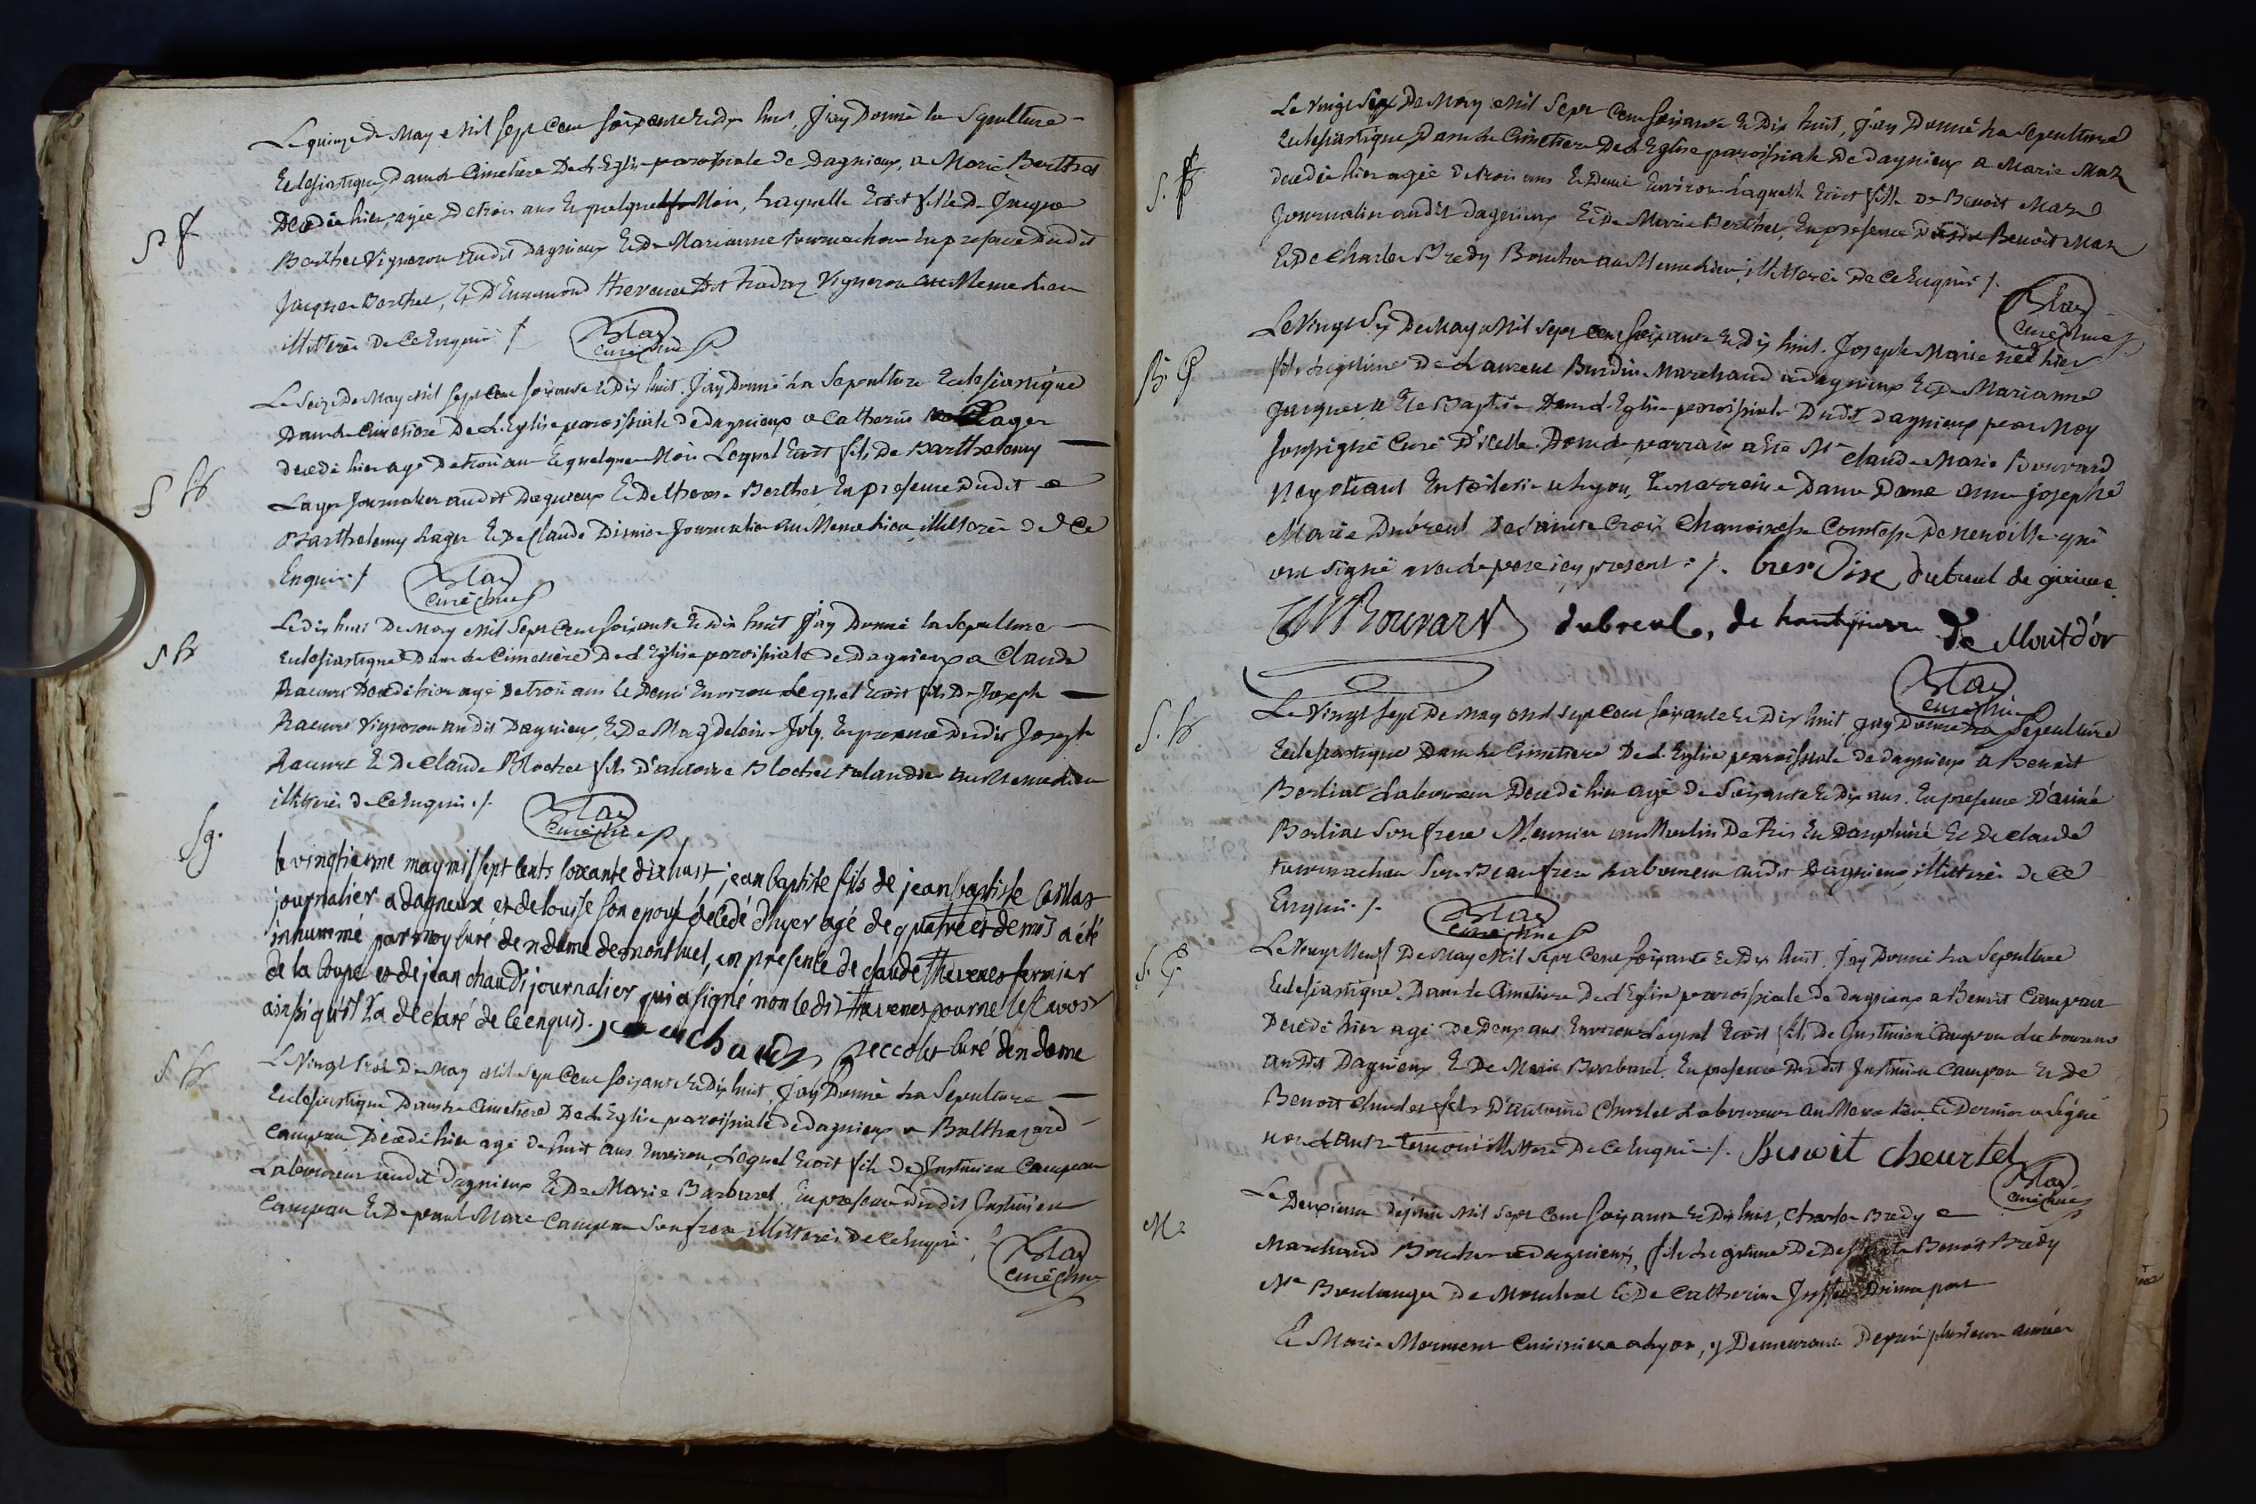 Le quinze de May Mil Sept Cent Soixante Et dix huit, J'ay Donné la Sepulture
Eclesiastique, Dans le Cimetiere De L'Eglise paroissiale de Dagnieux, a Marie Berthet
S. f
Decedée hier, agée De trois ans Et quelques Mois, Laquelle Etoit fille De Jacques
Berthet Vigneron audit Dagnieux Et De Marianne tournachon En presence Dudit
Jacques Berthet, Et D'Ennemond thevenet Dit Vigneron au Meme Lieu
illitterés De Ce Enquis /.
Blay
curé
Le Seize De May Mil Sept Cent Soixante Et Dix huit. J'ay Donné La Sepulture Eclesiastique
Dans le Cimetiere De L'Eglise paroissiale de dagnieux a Catherin Lager
S h
decedé hier agé De trois ans Et quelques Mois Lequel Etoit fils De Barthelemy
Lager Journalier audit Dagnieux Et De therese Berthet En presence Dudit
Barthelemy Lager Et De Claude Journalier au Meme Lieu, illitterés De Ce
Enquis /.
Blay
curé
Le dix huit De May Mil Sept Cent Soixante Et dix huit J'ay Donné la Sepulture
S h
Eclesiastique Dans le Cimetiere De L'Eglise paroissiale De Dagnieux a Claude
Decedé hier agé De trois ans Et Demi Environ Lequel Etoit fils De Joseph
Vigneron audit Dagnieux, Et De Magdelaine Joly. En presence Dudit Joseph
Et De Claude Blochet fils D'antoine Blochet au Meme Lieu
illitterés de Ce Enquis /.
Blay
curé
Sg.
le vingtieme may mil sept cents soixante dix huit jean baptiste fils de jean baptiste
journalier a dagneux et de louise son epouse decedé d'hyer agé de quatre et demis a été
inhummé par moy curé de n dame de montluel, en presence de claude thevenet fermier
de la coupe et de jean chaudi journalier qui a signé non ledit thevenet pour ne le scavoir
ainsi qu'il l'a declaré de ce enquis. jean chaudi curé de n dame
Le Vingt trois De May Mil Sept Cent Soixante Et Dix huit, J'ay Donné La Sepulture
S h
Eclesiastique Dans Le Cimetiere De L'Eglise paroissiale De dagnieux a Balthazard
Campan, Decedé hier agé De huit ans Environ, Lequel Etoit fils De Justinien Campan
Laboureur audit Dagnieux Et De Marie Barbaret, En presence Dudit Justinien
Campan Et De paul Marc Campan Son frere illitterés De Ce Enquis
Blay
curé
Le Vingt Six De May Mil Sept Cent Soixante Et Dix huit, J'ay Donné La Sepulture
Eclesiastique Dans le Cimetiere De L'Eglise paroissiale De dagnieux a Marie Maz
S. f
decedée hier agée De trois ans Et Demi Environ Laquelle Etoit fille De Benoit Maz
Journalier audit Dagnieux Et De Marie Berthet, En presence Dudit Benoit Maz
Et De Charles Bredy Boucher au Meme Lieu, illitterés De Ce Enquis /.
Blay
curé
Le Vingt Six De May Mil Sept Cent Soixante Et Dix huit. Joseph Marie né hier
B. G
fils Legitime De Laurent Burdin Marchand a Dagnieux Et De Marianne
a Eté Baptisé Dans L'Eglise paroissiale Dudit Dagnieux par Moy
Soussigné Curé D'icelle. Dont le parrain a Eté Mr Claude Marie Bouvard
Negotiant En a Lyon, Et marraine Dame Dame anne josephe
Marie Dubreul De Sainte Croix Chanoinesse Comtesse De neuville qui
ont signé avec le pere icy present /. burdin dubreul de
Bouvard dubreul, de de Montd'or
Blay
curé
Le Vingt Sept De May Mil Sept Cent Soixante Et Dix huit J'ay Donné La Sepulture
S. h
Eclesiastique Dans Le Cimetiere De L'Eglise paroissiale De dagnieux a Benoit
Berliat Laboureur Decedé hier agé De Soixante Et Dix ans. En presence D'aimé
Berliat Son frere Meunier au Moulin De En Dauphiné Et De Claude
tournachon Son Beaufrere Laboureur audit Dagnieux, illitterés De Ce
Enquis /.
Blay
curé
Le Vingt Neuf De May Mil Sept Cent Soixante Et Dix huit. J'ay Donné La Sepulture
S. G
Eclesiastique Dans le Cimetiere De L'Eglise paroissiale De dagnieux a Benoit Campan
Decedé hier agé De Deux ans Environ Lequel Etoit fils De Justinien Campan Laboureur
audit Dagnieux Et De Marie Barbaret. En presence Dudit Justinien Campan Et De
Benoit Churlet fils D'antoine Churlet Laboureur au Meme Lieu, Ce Dernier a Signé
non L'autre temoin illitteré De Ce Enquis /. Benoit cheurlet
Blay
curé
Le Deuxieme De juin Mil Sept Cent Soixante Et Dix huit, Charles Bredy
M
Marchand Boucher a dagnieux, fils Legitime De Benoit Bredy
Me Boulanger De Montluel Et De Catherine D'une part
Et Marie Morment Cuisiniere a Lyon, y Demeurante Depuis plusieurs années